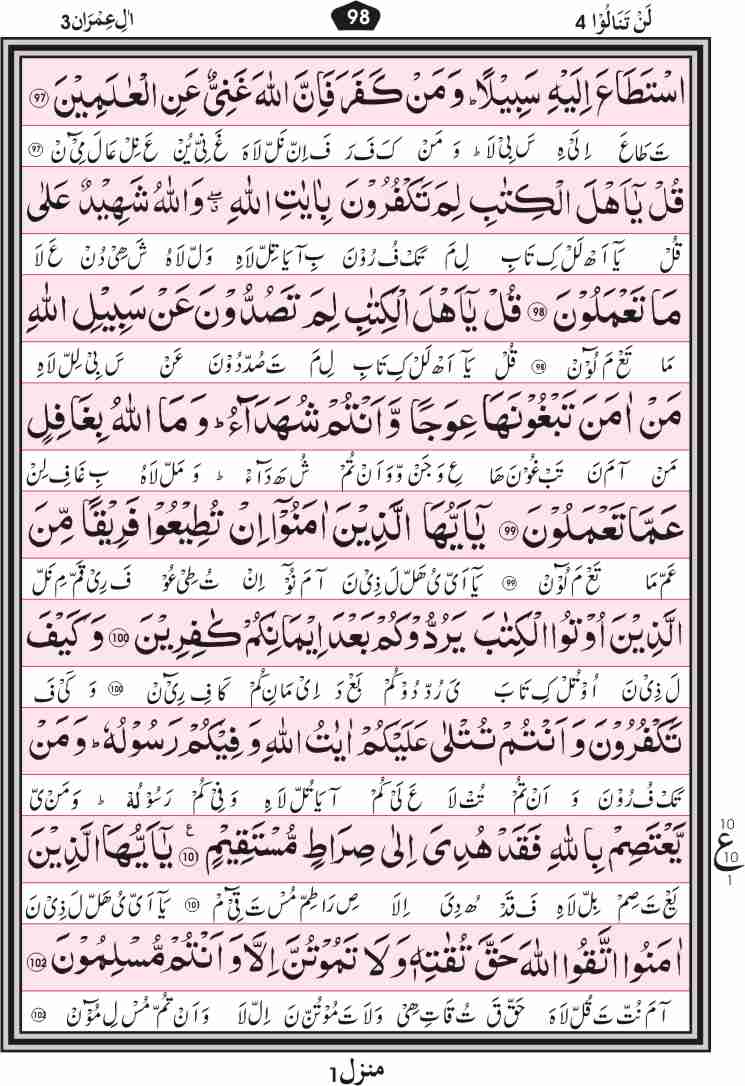 لَنْ تَنَالُوْا 4 98 اٰلِ عِمْرَان 3
اسْتَطَاعَ اِلَيْهِ سَبِيْلًا ؕ وَ مَنْ كَفَرَ فَاِنَّ اللّٰهَ غَنِىٌّ عَنِ الْعٰلَمِيْنَ ۹۷
تَ طَاعَ اِلَىْ هِ سَ بِىْ لَا ؕ وَ مَنْ كَ فَ رَ فَ اِنّ نَلّ لَا هَ غَ نِىّ يُنْ عَ نِلْ عَا لَ مِىْٓ نْ ۹۷
قُلْ يٰۤاَهْلَ الْكِتٰبِ لِمَ تَكْفُرُوْنَ بِاٰيٰتِ اللّٰهِ ۖ وَاللّٰهُ شَهِيْدٌ عَلٰى
قُلْ يَاۤ اَهْ لَلْ كِ تَابِ لِ مَ تَكْ فُ رُوْ نَ بِ آ يَا تِلّ لَا هِ وَلّ لَا هُ شَ هِىْ دُنْ عَ لَا
مَا تَعْمَلُوْنَ ۹۸ قُلْ يٰۤاَهْلَ الْكِتٰبِ لِمَ تَصُدُّوْنَ عَنْ سَبِيْلِ اللّٰهِ
مَا تَعْ مَ لُوْٓ نْ ۹۸ قُلْ يَاۤ اَهْ لَلْ كِ تَابِ لِ مَ تَ صُدّ دُوْ نَ عَنْ سَ بِىْ لِلّ لَا هِ
مَنْ اٰمَنَ تَبْغُوْنَهَا عِوَجًا وَّاَنْتُمْ شُهَدَآءُ ؕ وَ مَا اللّٰهُ بِغَافِلٍ
مَنْ آ مَ نَ تَبْ غُوْ نَ هَا عِ وَ جَنْ وَّ وَ اَنْ تُمْ شُ هَ دَآءْ ؕ وَ مَلّ لَا هُ بِ غَا فِ لِنْ
عَمَّا تَعْمَلُوْنَ ۹۹ يٰۤاَيُّهَا الَّذِيْنَ اٰمَنُوْۤا اِنْ تُطِيْعُوْا فَرِيْقًا مِّنَ
عَمّ مَا تَعْ مَ لُوْٓ نْ ۹۹ يَاۤ اَىّ ىُ هَلّ لَ ذِىْ نَ آ مَ نُوْۤ اِنْ تُ طِىْ عُوْ فَ رِىْ قَمّ مِ نَلّ
الَّذِيْنَ اُوْتُوا الْكِتٰبَ يَرُدُّوْكُمْ بَعْدَ اِيْمَانِكُمْ كٰفِرِيْنَ ۱۰۰ وَ كَيْفَ
لَ ذِىْ نَ اُوْ تُلْ كِ تَا بَ ىَ رُدّ دُوْ كُمْ بَعْ دَ اِىْ مَا نِ كُمْ كَا فِ رِىْٓ نْ ۱۰۰ وَ كَىْ فَ
تَكْفُرُوْنَ وَ اَنْتُمْ تُتْلٰى عَلَيْكُمْ اٰيٰتُ اللّٰهِ وَ فِيْكُمْ رَسُوْلُهٗ ؕ وَ مَنْ
تَكْ فُ رُوْ نَ وَ اَنْ تُمْ تُتْ لَا عَ لَىْ كُمْ آ يَا تُلّ لَا هِ وَ فِىْ كُمْ رَ سُوْ لُهْ ؕ وَ مَنْ ىّ
يَّعْتَصِمْ بِاللّٰهِ فَقَدْ هُدِىَ اِلٰى صِرَاطٍ مُّسْتَقِيْمٍ ۱۰۱ ع يٰۤاَيُّهَا الَّذِيْنَ
10 ع 10 1
يَعْ تَ صِمْ بِلّ لَا هِ فَ قَدْ هُ دِىَ اِلَا صِ رَا طِمّ مُسْ تَ قِىْٓ مْ يَاۤ اَىّ ىُ هَلّ لَ ذِىْ نَ
اٰمَنُوا اتَّقُوا اللّٰهَ حَقَّ تُقٰتِهٖ وَ لَا تَمُوْتُنَّ اِلَّا وَ اَنْتُمْ مُّسْلِمُوْنَ ۱۰۲
آ مَ نُتّ تَ قُلّ لَا هَ حَقّ قَ تُ قَا تِ هِىْ وَ لَا تَ مُوْ تُنّ نَ اِلّ لَا وَ اَنْ تُمّ مُسْ لِ مُوْٓ نْ ۱۰۲
منزل 1